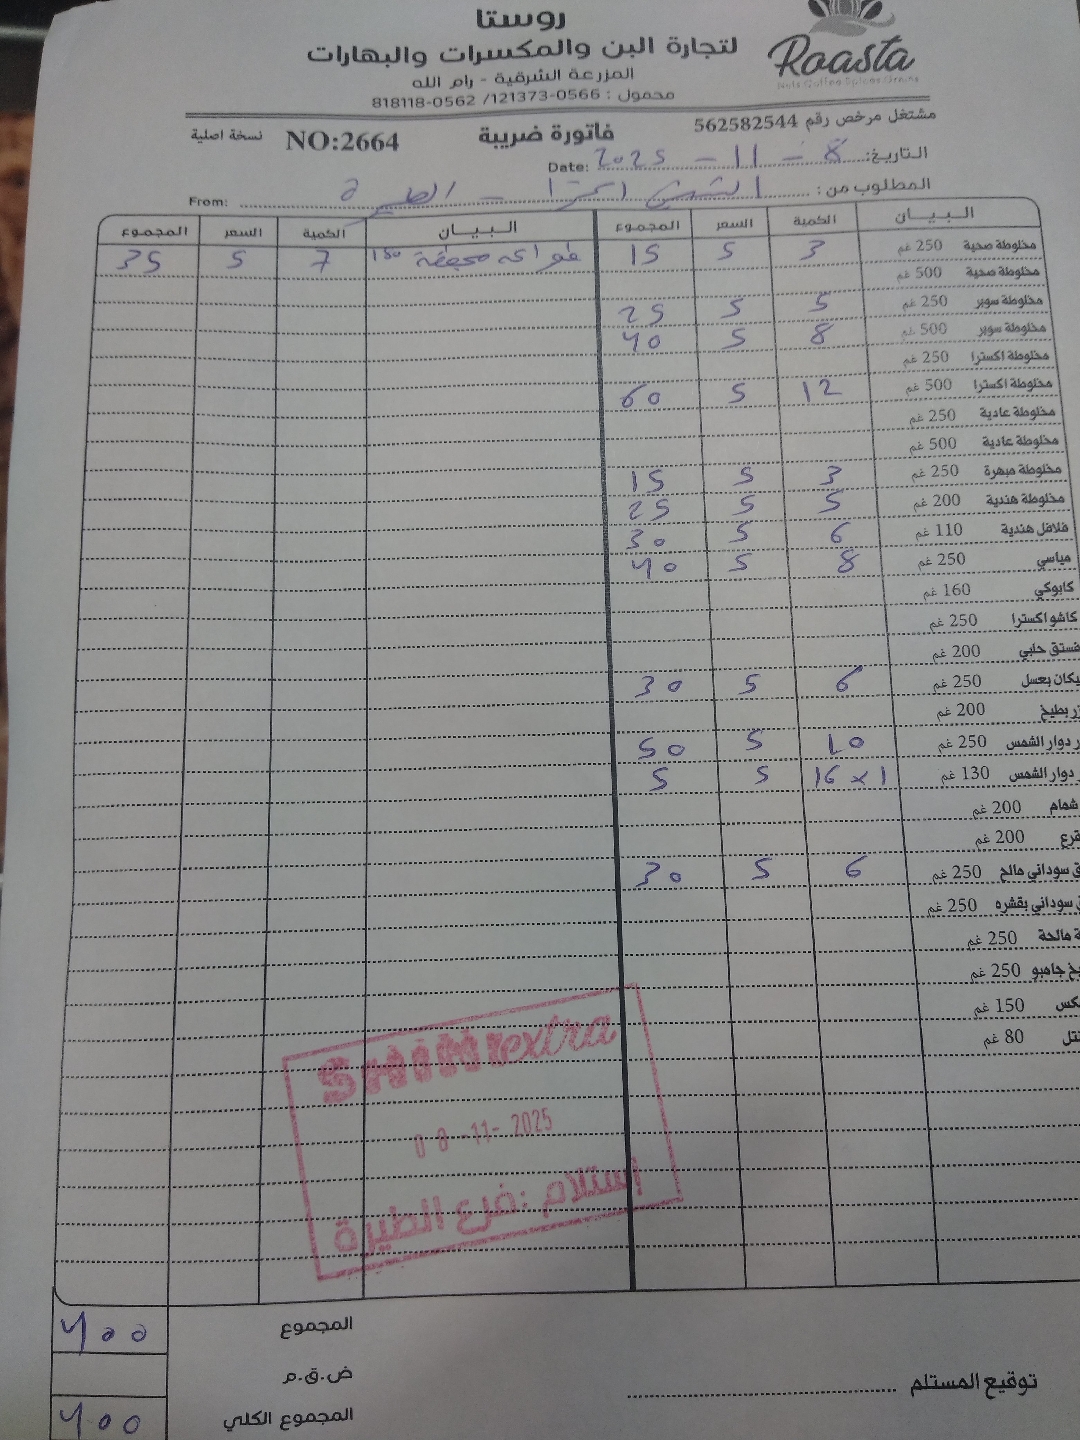 روستا
لتجارة البن والمكسرات والبهارات
المزرعة الشرقية - رام الله
محمول : 0566-121373/ 0562-818118
Roasta
Nuts Coffee Spices Grains
مشتغل مرخص رقم 562582544
فاتورة ضريبة
NO:2664
نسخة اصلية
التاريخ: 8 - 11 - 2025 Date:
المطلوب من: الشني اكسترا - الطيرة From:
البيــان الكمية السعر المجموع البيــان الكمية السعر المجموع
مخلوطة صحية 250 غم 3 5 15 فواكه مجففة 150 7 5 35
مخلوطة صحية 500 غم
مخلوطة سوبر 250 غم 5 5 25
مخلوطة سوبر 500 غم 8 5 40
مخلوطة اكسترا 250 غم
مخلوطة اكسترا 500 غم 12 5 60
مخلوطة عادية 250 غم
مخلوطة عادية 500 غم
مخلوطة مبهرة 250 غم 3 5 15
مخلوطة هندية 200 غم 5 5 25
فلافل هندية 110 غم 6 5 30
مياسي 250 غم 8 5 40
كابوكي 160 غم
كاشو اكسترا 250 غم
فستق حلبي 200 غم
يكان بعسل 250 غم 6 5 30
زر بطيخ 200 غم
ر دوار الشمس 250 غم 10 5 50
دوار الشمس 130 غم 1 × 16 5 5
شمام 200 غم
قرع 200 غم
ق سوداني مالح 250 غم 6 5 30
ق سوداني بقشره 250 غم
ة مالحة 250 غم
يخ جامبو 250 غم
كس 150 غم
تل 80 غم
SHINI extra
08-11-2025
إستلام : فرع الطيرة
المجموع 400
ض.ق.م
المجموع الكلي 400
توقيع المستلم